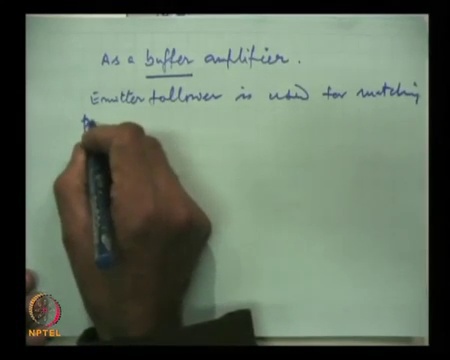 As a buffer amplifier.
Emitter follower is used for matching
NPTEL